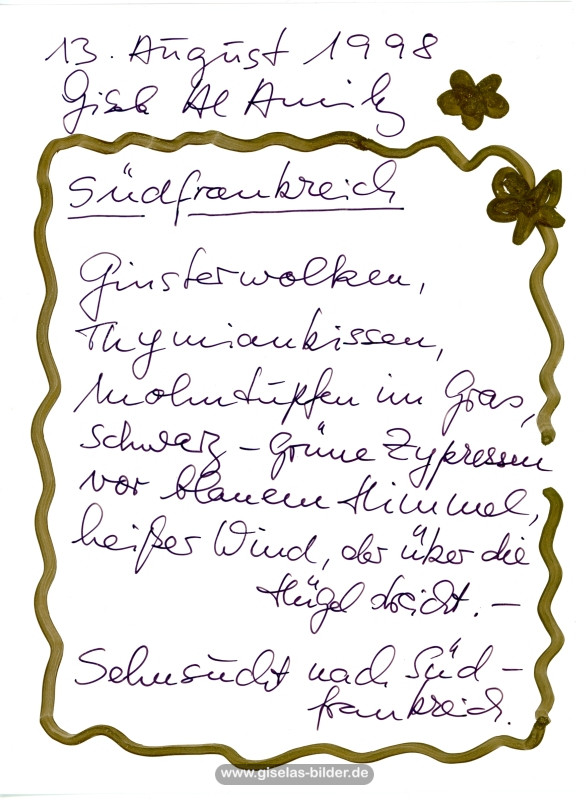 13. August 1998
Gisela Al Amily
Südfrankreich
Ginsterwolken,
Thymiankissen,
Mohntupfen im Gras,
schwarz-grüne Zypressen
vor blauem Himmel,
heißer Wind, der über die
Hügel streicht. –
Sehnsucht nach Süd-
frankreich.
www.giselas-bilder.de